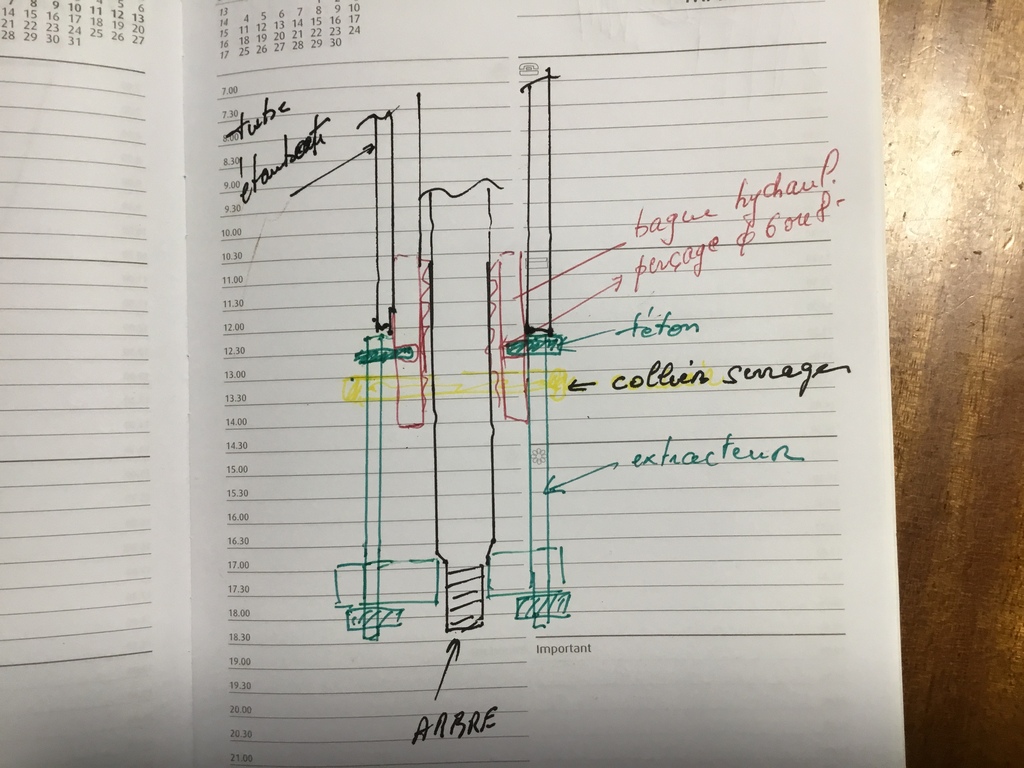 7 8 9 10 4 5 6
14 15 16 17 11 12 13
21 22 23 24 18 19 20
28 29 30 31 25 26 27
13 1 2 3
14 4 5 6 7 8 9 10
15 11 12 13 14 15 16 17
16 18 19 20 21 22 23 24
17 25 26 27 28 29 30
7.00
7.30
tube
8.00
étambot
8.30
9.00
9.30
bague hydraul.
10.00
perçage ϕ 6 ou 8
10.30
11.00
11.30
12.00
téton
12.30
13.00
← collier serrage
13.30
14.00
14.30
extracteur
15.00
15.30
16.00
16.30
17.00
17.30
18.00
18.30
Important
19.00
19.30
20.00
ARBRE
20.30
21.00